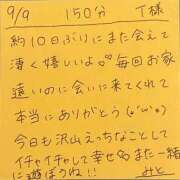 9/9 150分 T様
約10日ぶりにまた会えて
凄く嬉しいよ♡毎回お家
遠いのに会いに来てくれて
本当にありがとう(๑′ω`๑)
今日も沢山えっちなことして
イチャイチャして幸せ♡♡また一緒
に遊ぼうね!! みと